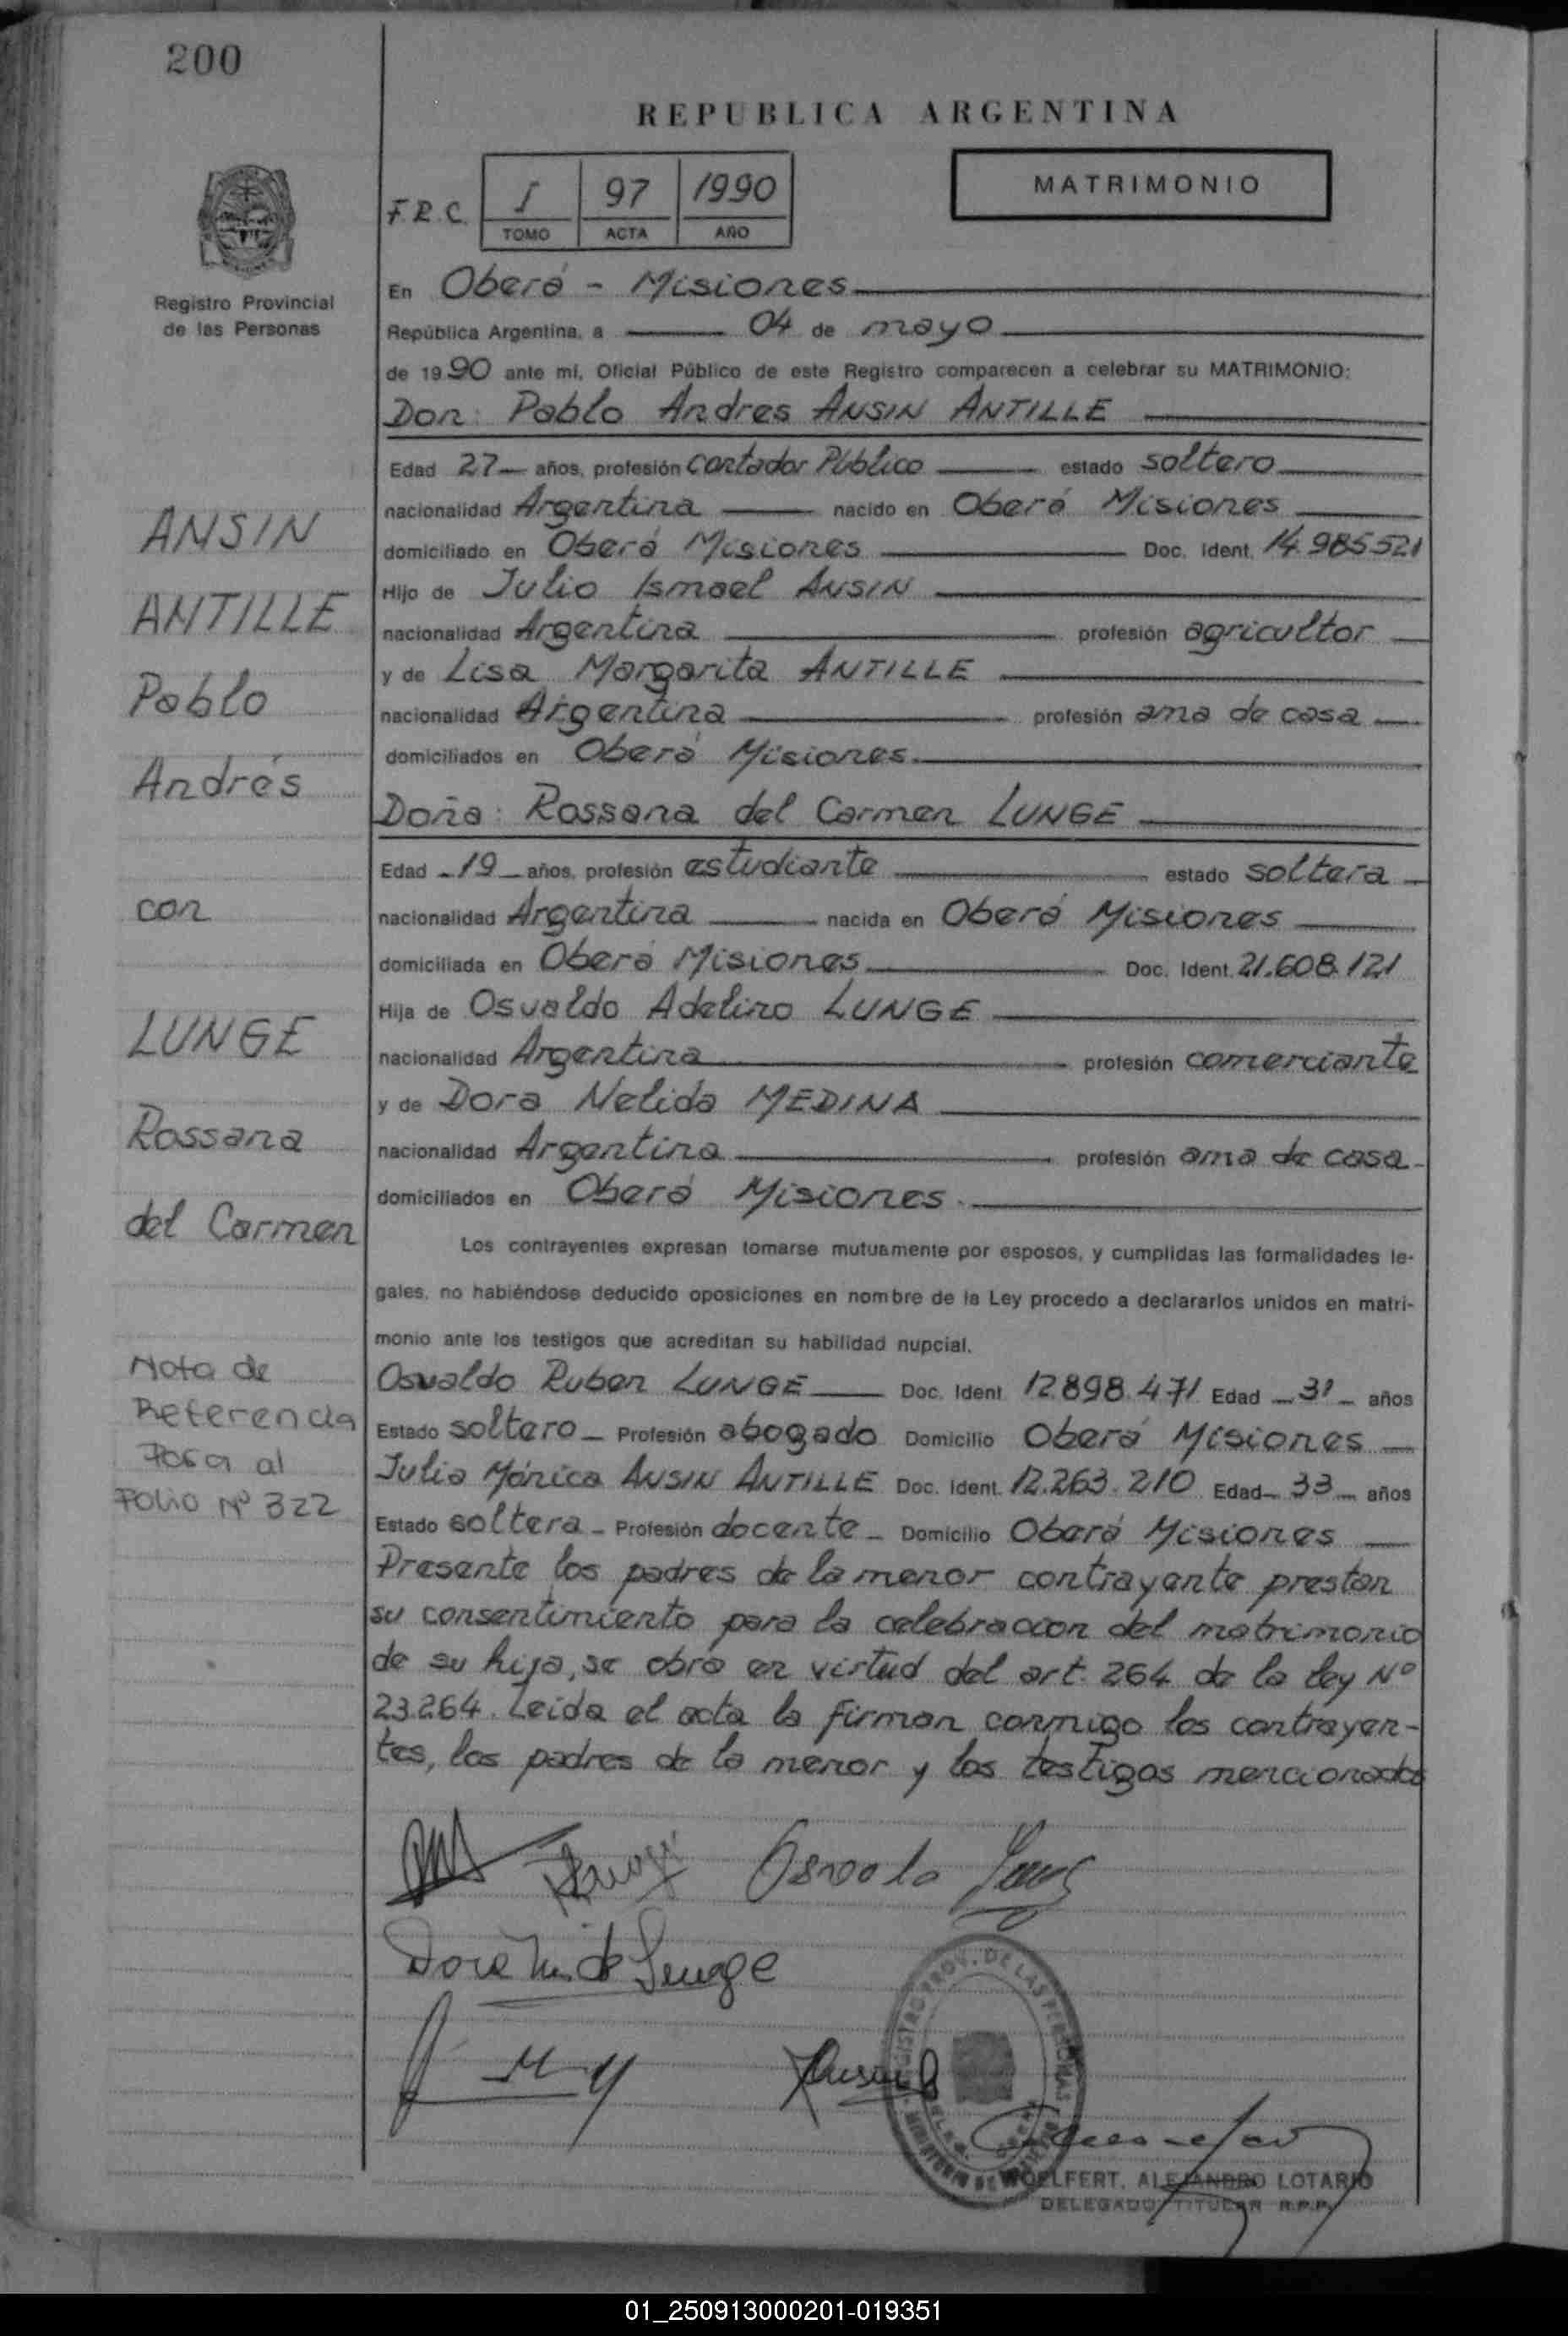 200
REPUBLICA ARGENTINA
MATRIMONIO
F.R.C. I 97 1990
TOMO ACTA AÑO
Registro Provincial
de las Personas
En Oberá - Misiones
República Argentina, a 04 de mayo
de 1990 ante mí, Oficial Público de este Registro comparecen a celebrar su MATRIMONIO:
Don: Pablo Andres ANSIN ANTILLE
Edad 27 años, profesión Contador Público estado soltero
nacionalidad Argentina nacido en Oberá Misiones
domiciliado en Oberá Misiones Doc. Ident. 14.985.521
Hijo de Julio Ismael ANSIN
nacionalidad Argentina profesión agricultor
y de Lisa Margarita ANTILLE
nacionalidad Argentina profesión ama de casa
domiciliados en Oberá Misiones
Doña: Rossana del Carmen LUNGE
Edad 19 años, profesión estudiante estado soltera
nacionalidad Argentina nacida en Oberá Misiones
domiciliada en Oberá Misiones Doc. Ident. 21.608.121
Hija de Osvaldo Adelino LUNGE
nacionalidad Argentina profesión comerciante
y de Dora Nelida MEDINA
nacionalidad Argentina profesión ama de casa
domiciliados en Oberá Misiones
Los contrayentes expresan tomarse mutuamente por esposos, y cumplidas las formalidades le-
gales, no habiéndose deducido oposiciones en nombre de la Ley procedo a declararlos unidos en matri-
monio ante los testigos que acreditan su habilidad nupcial.
Osvaldo Ruben LUNGE Doc. Ident 12.898.471 Edad 31 años
Estado soltero Profesión abogado Domicilio Oberá Misiones
Julia Mónica ANSIN ANTILLE Doc. Ident. 12.263.210 Edad 33 años
Estado soltera Profesión docente Domicilio Oberá Misiones
Presente los padres de la menor contrayente prestan
su consentimiento para la celebracion del matrimonio
de su hija, se obra en virtud del art. 264 de la ley Nº
23.264. Leida el acta la firman conmigo los contrayen-
tes, los padres de la menor y los testigos mencionados
ANSIN
ANTILLE
Pablo
Andrés
con
LUNGE
Rossana
del Carmen
Nota de
Referencia
Pasa al
Folio Nº 322
Osvaldo
Dora M. de Lunge
REGISTRO PROV. DE LAS PERSONAS
WOELFERT, ALEJANDRO LOTARIO
DELEGADO TITULAR R.P.P.
01_250913000201-019351